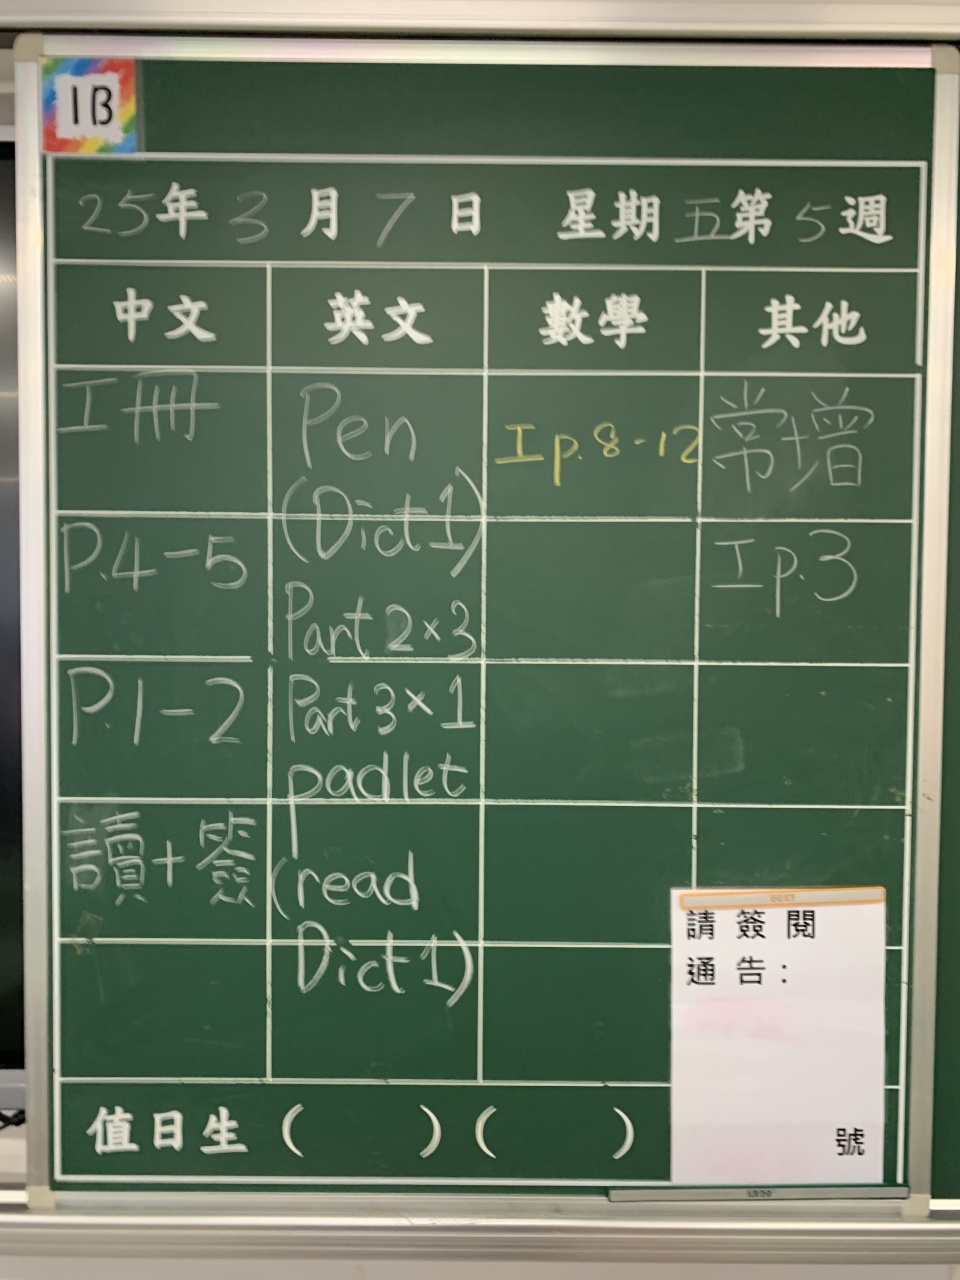 1B
25年3月7日 星期五第5週
中文 英文 數學 其他
工冊
P.4-5
P.1-2
讀+簽
Pen
(Dict 1)
Part 2×3
Part 3×1
padlet
(read
Dict 1)
工p.8-12
常+增
工p.3
請簽閱
通告:
號
值日生 ( ) ( )